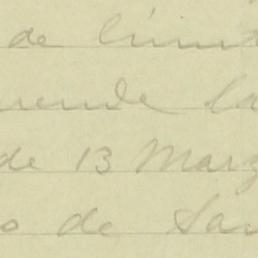 de limit
rende la
de 13 Marz
o de San